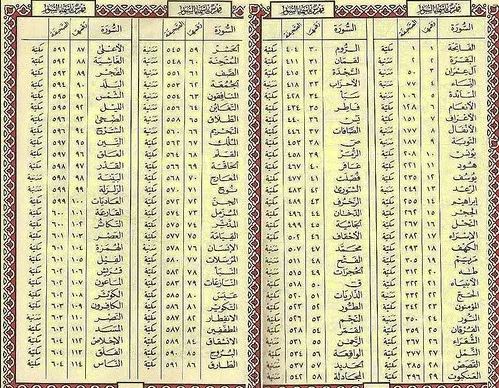 فهرس بأسماء السور
السورة رقمها الصفحة
الفاتحة ١ ١ مكية
البقرة ٢ ٢ مدنية
آل عمران ٣ ٥٠ مدنية
النساء ٤ ٧٧ مدنية
المائدة ٥ ١٠٦ مدنية
الأنعام ٦ ١٢٨ مكية
الأعراف ٧ ١٥١ مكية
الأنفال ٨ ١٧٧ مدنية
التوبة ٩ ١٨٧ مدنية
يونس ١٠ ٢٠٨ مكية
هود ١١ ٢٢١ مكية
يوسف ١٢ ٢٣٥ مكية
الرعد ١٣ ٢٤٩ مدنية
إبراهيم ١٤ ٢٥٥ مكية
الحجر ١٥ ٢٦٢ مكية
النحل ١٦ ٢٦٧ مكية
الإسراء ١٧ ٢٨٢ مكية
الكهف ١٨ ٢٩٣ مكية
مريم ١٩ ٣٠٥ مكية
طه ٢٠ ٣١٢ مكية
الأنبياء ٢١ ٣٢٢ مكية
الحج ٢٢ ٣٣٢ مدنية
المؤمنون ٢٣ ٣٤٢ مكية
النور ٢٤ ٣٥٠ مدنية
الفرقان ٢٥ ٣٥٩ مكية
الشعراء ٢٦ ٣٦٧ مكية
النمل ٢٧ ٣٧٧ مكية
القصص ٢٨ ٣٨٥ مكية
العنكبوت ٢٩ ٣٩٦ مكية
السورة رقمها الصفحة
الروم ٣٠ ٤٠٤ مكية
لقمان ٣١ ٤١١ مكية
السجدة ٣٢ ٤١٥ مكية
الأحزاب ٣٣ ٤١٨ مدنية
سبأ ٣٤ ٤٢٨ مكية
فاطر ٣٥ ٤٣٤ مكية
يس ٣٦ ٤٤٠ مكية
الصافات ٣٧ ٤٤٦ مكية
ص ٣٨ ٤٥٣ مكية
الزمر ٣٩ ٤٥٨ مكية
غافر ٤٠ ٤٦٧ مكية
فصلت ٤١ ٤٧٧ مكية
الشورى ٤٢ ٤٨٣ مكية
الزخرف ٤٣ ٤٨٩ مكية
الدخان ٤٤ ٤٩٦ مكية
الجاثية ٤٥ ٤٩٩ مكية
الأحقاف ٤٦ ٥٠٢ مكية
محمد ٤٧ ٥٠٧ مدنية
الفتح ٤٨ ٥١١ مدنية
الحجرات ٤٩ ٥١٥ مدنية
ق ٥٠ ٥١٨ مكية
الذاريات ٥١ ٥٢٠ مكية
الطور ٥٢ ٥٢٣ مكية
النجم ٥٣ ٥٢٦ مكية
القمر ٥٤ ٥٢٨ مكية
الرحمن ٥٥ ٥٣١ مدنية
الواقعة ٥٦ ٥٣٤ مكية
الحديد ٥٧ ٥٣٧ مدنية
المجادلة ٥٨ ٥٤٢ مدنية
فهرس بأسماء السور
السورة رقمها الصفحة
الحشر ٥٩ ٥٤٥ مدنية
الممتحنة ٦٠ ٥٤٩ مدنية
الصف ٦١ ٥٥١ مدنية
الجمعة ٦٢ ٥٥٣ مدنية
المنافقون ٦٣ ٥٥٤ مدنية
التغابن ٦٤ ٥٥٦ مدنية
الطلاق ٦٥ ٥٥٨ مدنية
التحريم ٦٦ ٥٦٠ مدنية
الملك ٦٧ ٥٦٢ مكية
القلم ٦٨ ٥٦٤ مكية
الحاقة ٦٩ ٥٦٦ مكية
المعارج ٧٠ ٥٦٨ مكية
نوح ٧١ ٥٧٠ مكية
الجن ٧٢ ٥٧٢ مكية
المزمل ٧٣ ٥٧٤ مكية
المدثر ٧٤ ٥٧٥ مكية
القيامة ٧٥ ٥٧٧ مكية
الإنسان ٧٦ ٥٧٨ مدنية
المرسلات ٧٧ ٥٨٠ مكية
النبأ ٧٨ ٥٨٢ مكية
النازعات ٧٩ ٥٨٣ مكية
عبس ٨٠ ٥٨٥ مكية
التكوير ٨١ ٥٨٦ مكية
الانفطار ٨٢ ٥٨٧ مكية
المطففين ٨٣ ٥٨٧ مكية
الانشقاق ٨٤ ٥٨٩ مكية
البروج ٨٥ ٥٩٠ مكية
الطارق ٨٦ ٥٩١ مكية
السورة رقمها الصفحة
الأعلى ٨٧ ٥٩١ مكية
الغاشية ٨٨ ٥٩٢ مكية
الفجر ٨٩ ٥٩٣ مكية
البلد ٩٠ ٥٩٤ مكية
الشمس ٩١ ٥٩٥ مكية
الليل ٩٢ ٥٩٥ مكية
الضحى ٩٣ ٥٩٦ مكية
الشرح ٩٤ ٥٩٦ مكية
التين ٩٥ ٥٩٧ مكية
العلق ٩٦ ٥٩٧ مكية
القدر ٩٧ ٥٩٨ مكية
البينة ٩٨ ٥٩٨ مدنية
الزلزلة ٩٩ ٥٩٩ مدنية
العاديات ١٠٠ ٥٩٩ مكية
القارعة ١٠١ ٦٠٠ مكية
التكاثر ١٠٢ ٦٠٠ مكية
العصر ١٠٣ ٦٠١ مكية
الهمزة ١٠٤ ٦٠١ مكية
الفيل ١٠٥ ٦٠١ مكية
قريش ١٠٦ ٦٠٢ مكية
الماعون ١٠٧ ٦٠٢ مكية
الكوثر ١٠٨ ٦٠٢ مكية
الكافرون ١٠٩ ٦٠٣ مكية
النصر ١١٠ ٦٠٣ مدنية
المسد ١١١ ٦٠٣ مكية
الإخلاص ١١٢ ٦٠٤ مكية
الفلق ١١٣ ٦٠٤ مكية
الناس ١١٤ ٦٠٤ مكية